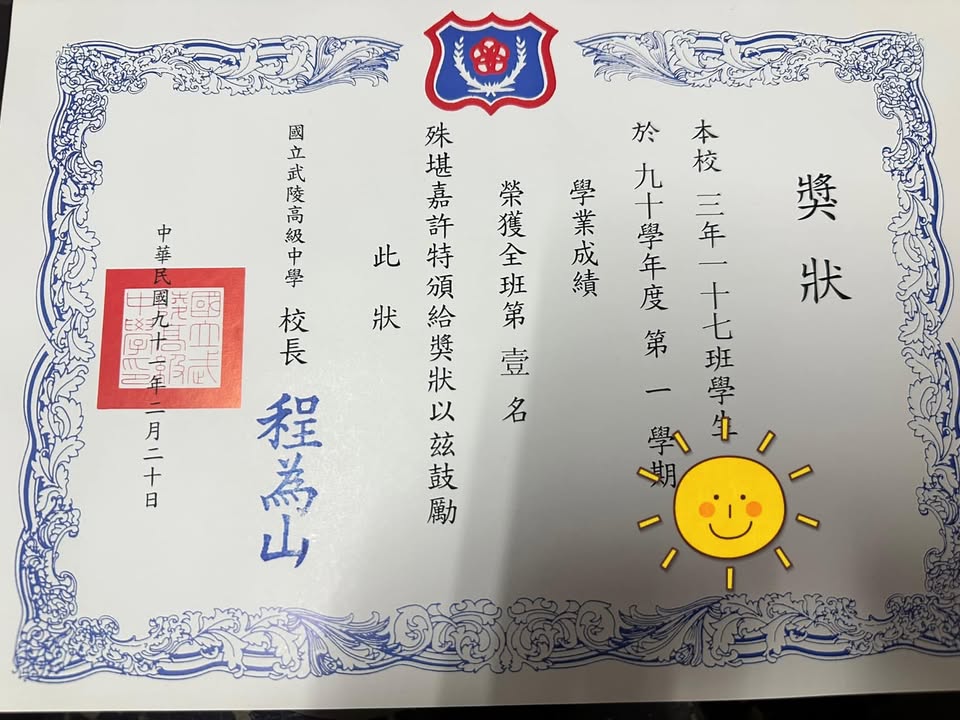 獎狀
本校三年一十七班學生
於九十學年度第一學期
學業成績
榮獲全班第壹名
殊堪嘉許特頒給獎狀以茲鼓勵
此狀
國立武陵高級中學 校長 程為山
中華民國九十一年二月二十日
國立武陵高級中學印